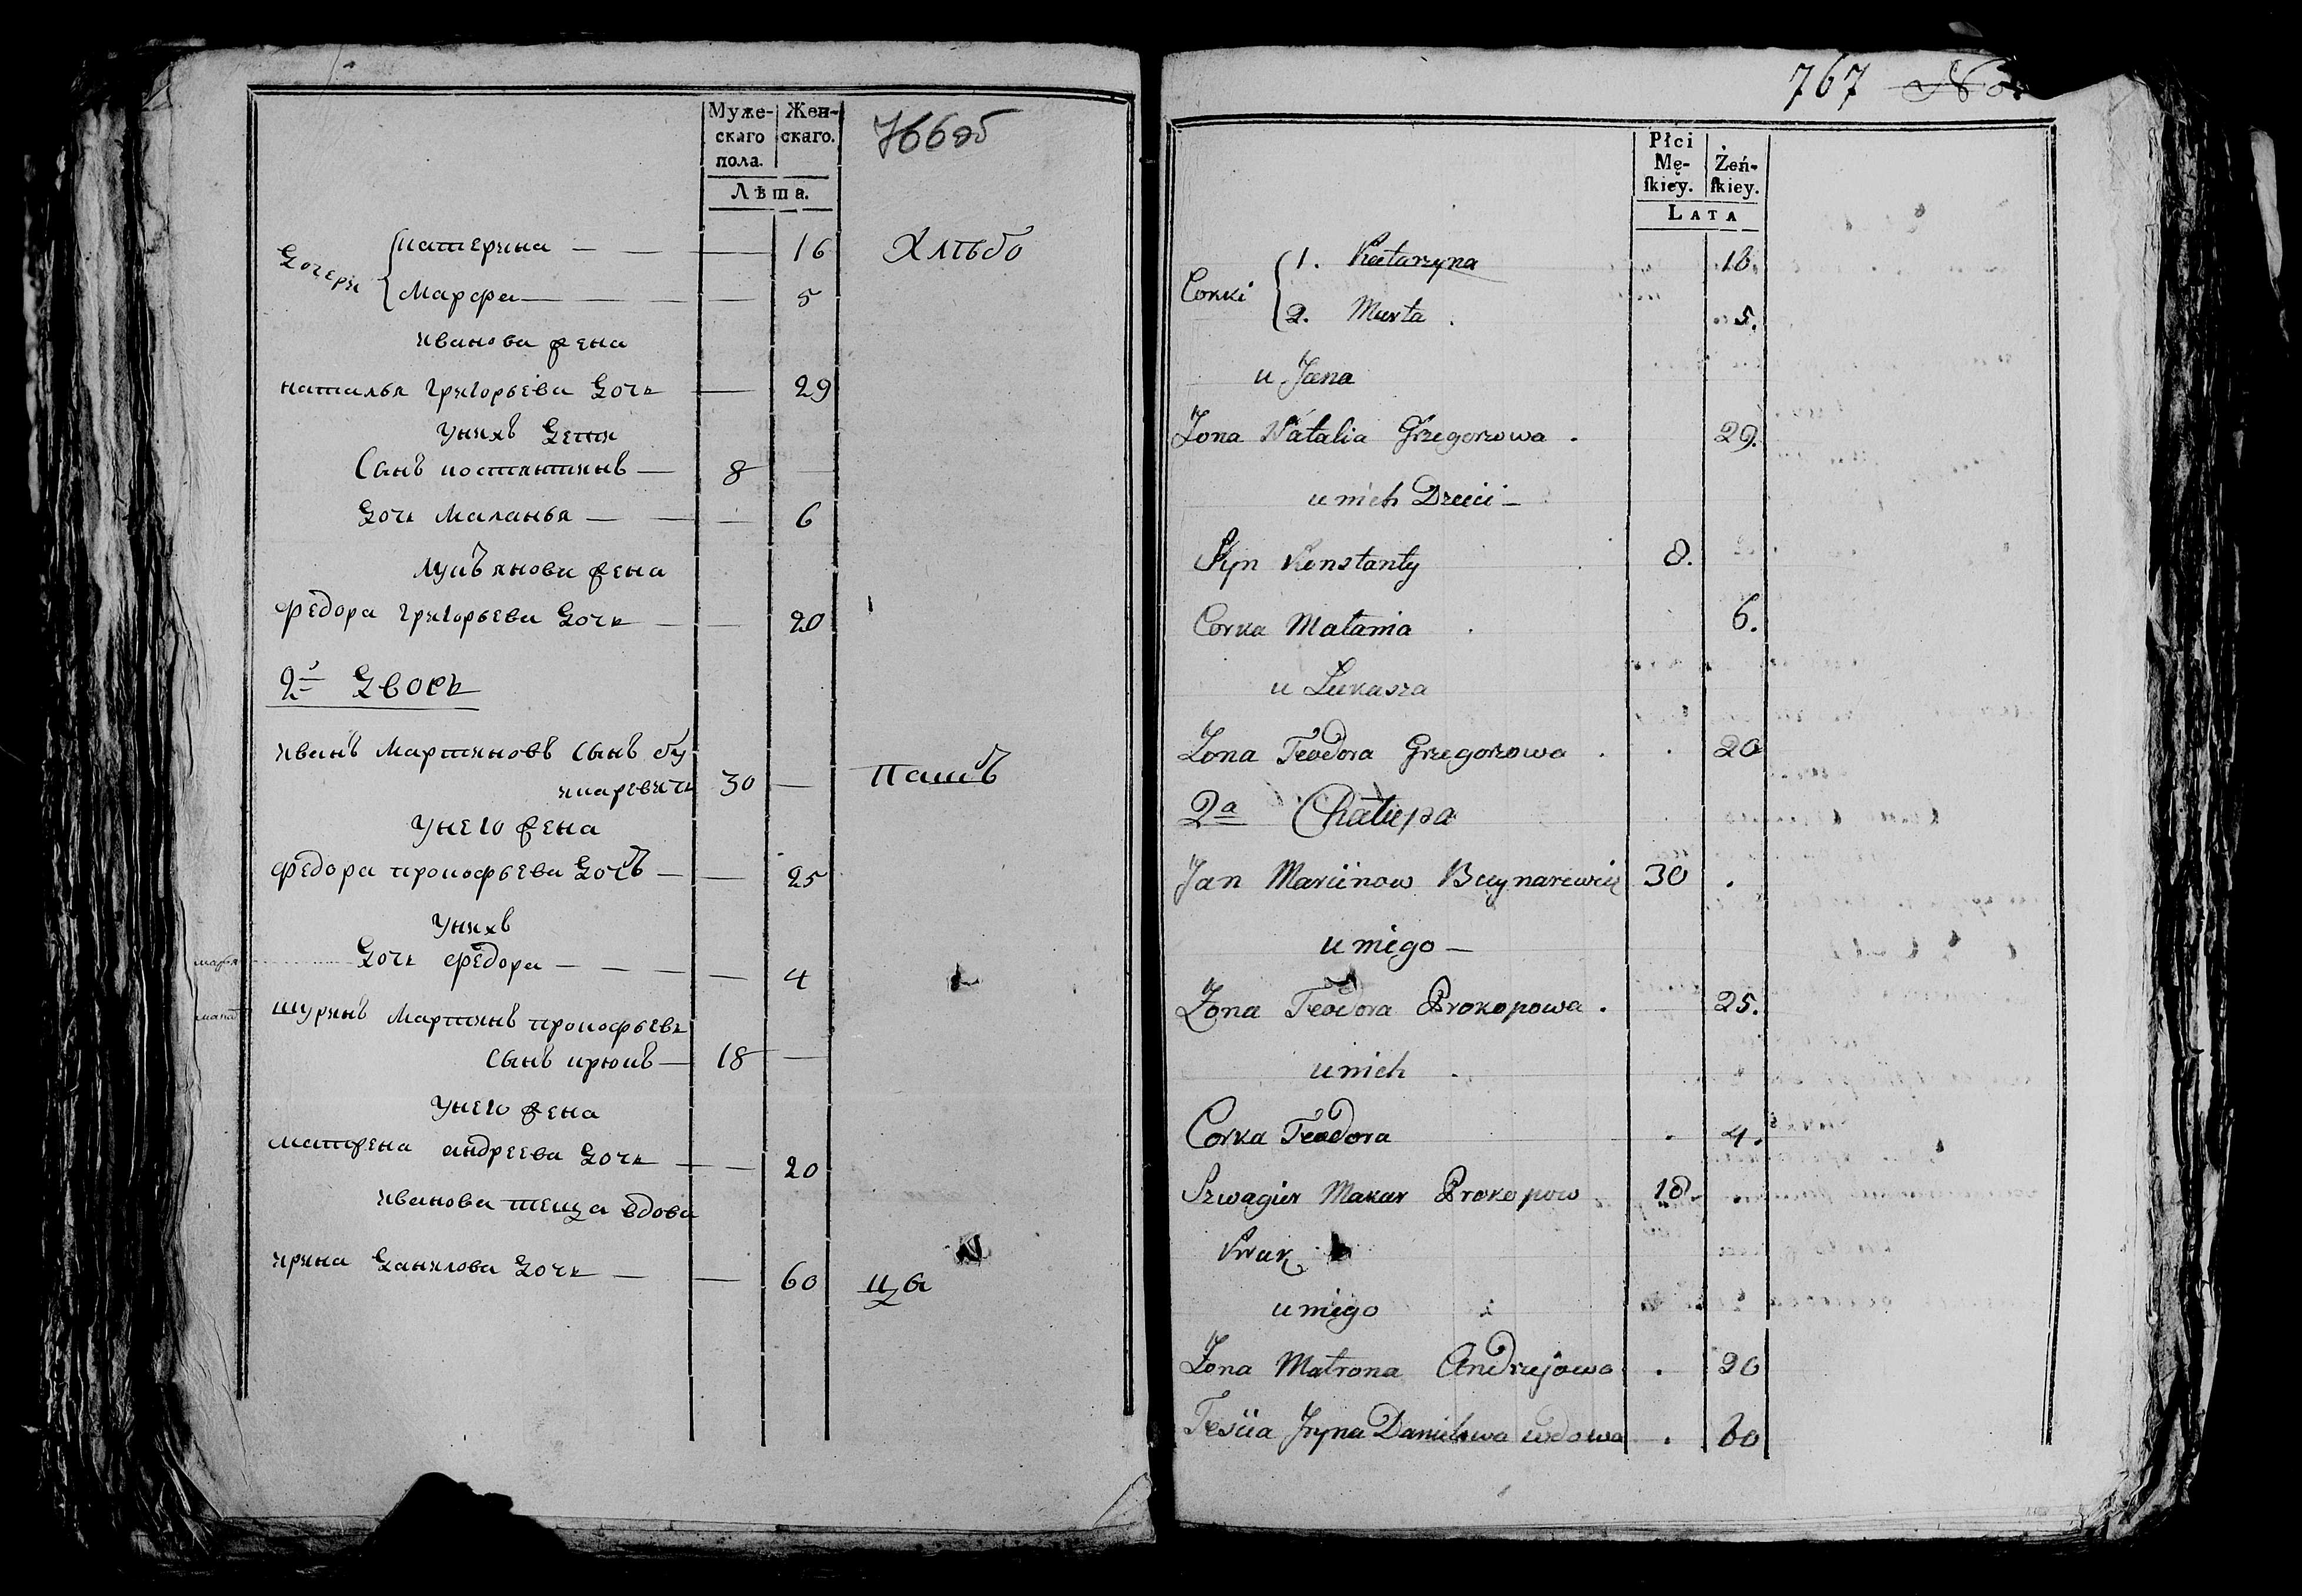 Муже-
скаго
пола.
Жен-
скаго.
Лѣта.
766об
Дочери
Катерина — — — 16 Хлѣбо
Марфа — — — 5
Иванова жена
Наталья Григорьева Дочь — 29
У нихъ Дети
Сынъ Костянтинъ — 8 —
Дочь Маланья — — — 6
Лукъянова жена
Федора Григорьева Дочь — — 20
2й Дворъ
Иванъ Мартиновъ Сынъ Бу
30 — Пашъ
У него жена
Федора Прокофьева Дочъ — — 25
У нихъ
Дочь Федора — — — — 4
Марья
Шуринъ Мартинъ Прокофьевъ
Сынъ Крюкъ — 18 —
У него жена
Матрена Андреева Дочь — — 20
Иванова теща вдова
Ирина Данилова Дочь — — 60 ца
767
Płci
Mę-
skiey.
Żeń-
skiey.
Lata
Corki
1. Katarzyna 16.
2. Marta . 5.
u Jana
Zona Natalia Grzegorzowa . 29.
u nich Dzieci —
Syn Konstanty 8.
Corka Małania . 6.
u Łukasza
Zona Teodora Grzegorzowa . . 20
2a Chałupa
Jan Marcinow Buynarewicz 30 .
u niego —
Zona Teodora Prokopowa . 25.
u nich .
Corka Teodora . 4.
Szwagier Makar Prokopow 18. .
Kruk
u niego
Zona Matrona Andrzejowa . 20
Teścia Jryna Daniłowa wdowa . 60